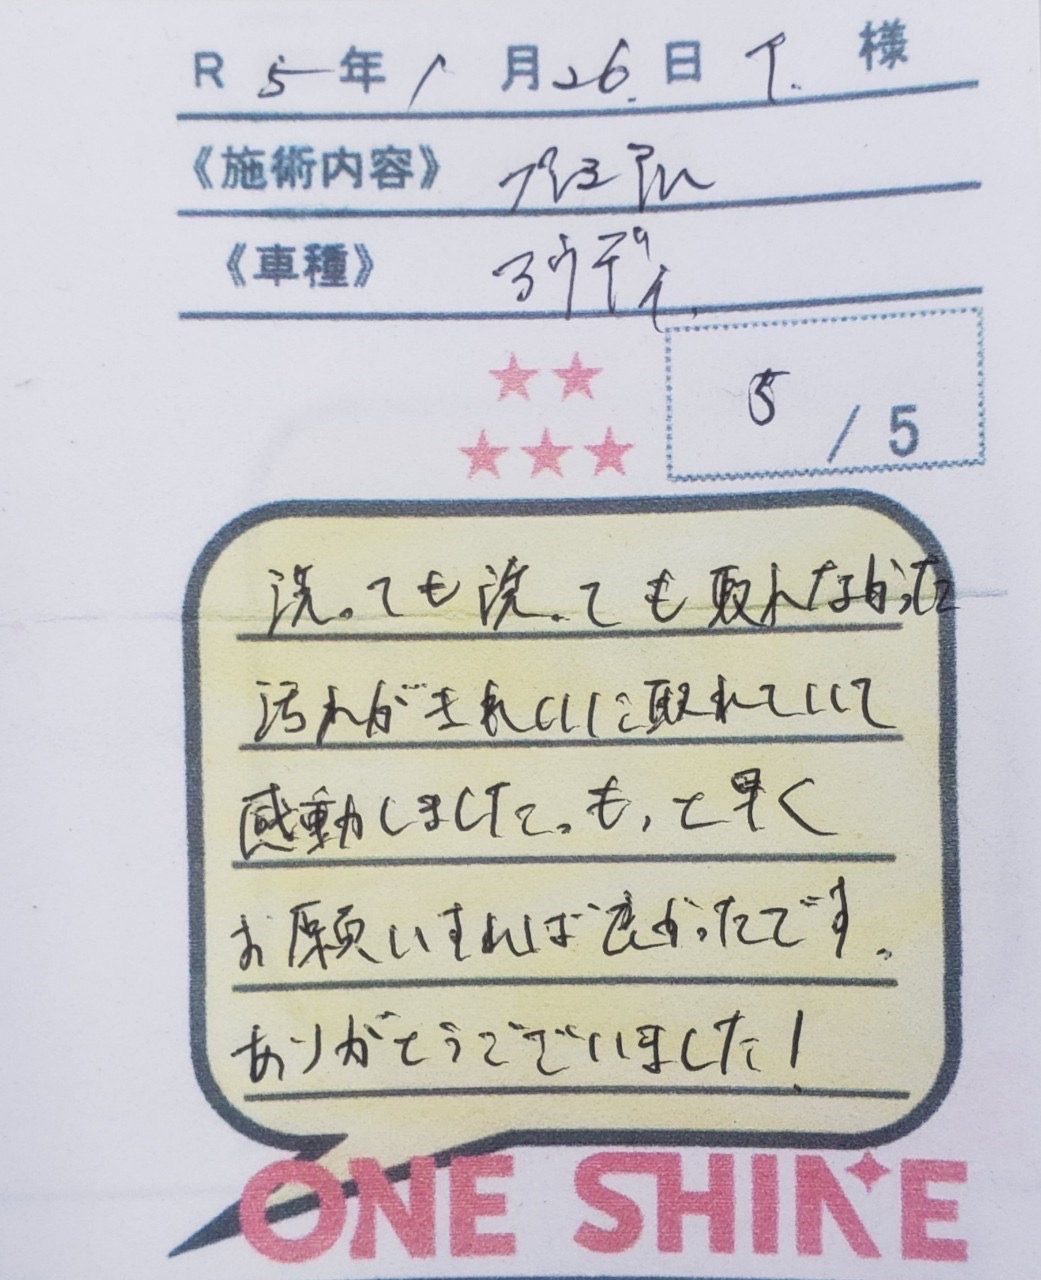 R 5年1月26日 T. 様
《施術内容》 プレミアム
《車種》 アウディ
★★
★★★
5/5
洗っても洗っても取れなかった
汚れがきれいに取れていて
感動しました。もっと早く
お願いすれば良かったです。
ありがとうございました!
ONE SHINE